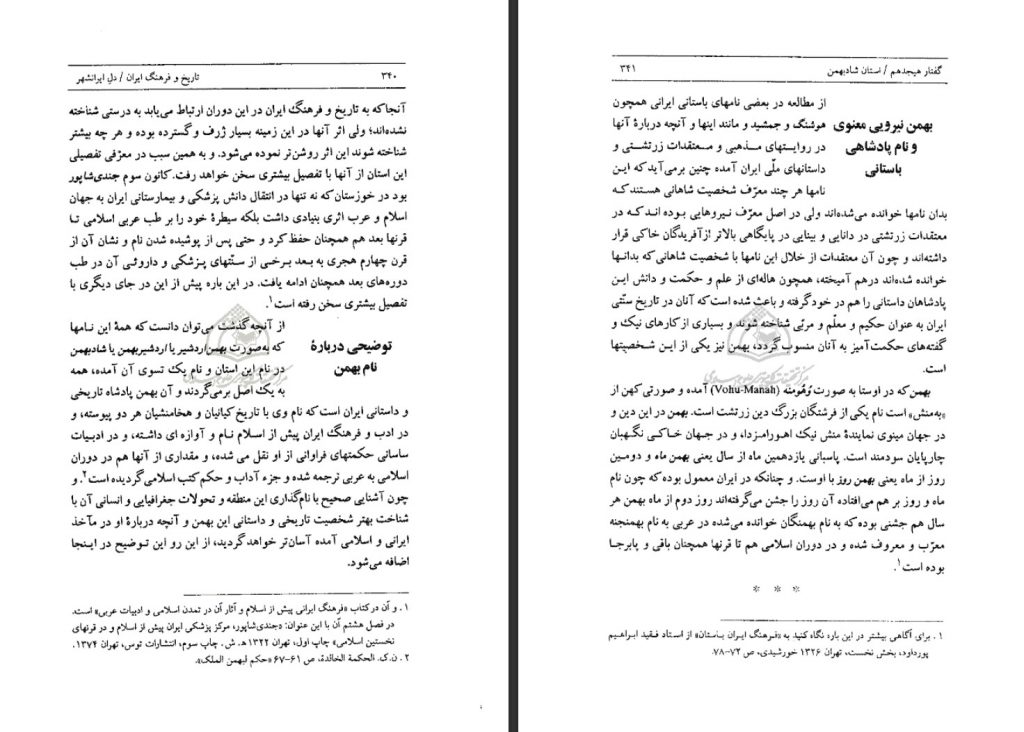 ۳۴۰ تاریخ و فرهنگ ایران / دل ایرانشهر
آنجاکه به تاریخ و فرهنگ ایران در این دوران ارتباط می‌یابد به درستی شناخته
نشده‌اند؛ ولی اثر آنها در این زمینه بسیار ژرف و گسترده بوده و هر چه بیشتر
شناخته شوند این اثر روشن‌تر نموده می‌شود. و به همین سبب در معرّفی تفصیلی
این استان از آنها با تفصیل بیشتری سخن خواهد رفت. کانون سوم جندی‌شاپور
بود در خوزستان که نه تنها در انتقال دانش پزشکی و بیمارستانی ایران به جهان
اسلام و عرب اثری بنیادی داشت بلکه سیطرهٔ خود را بر طب عربی اسلامی تا
قرنها بعد هم همچنان حفظ کرد و حتی پس از پوشیده شدن نام و نشان آن از
قرن چهارم هجری به بعد برخی از سنّتهای پزشکی و داروئی آن در طب
دوره‌های بعد همچنان ادامه یافت. در این باره پیش از این در جای دیگری با
تفصیل بیشتری سخن رفته است۱.
توضیحی دربارهٔ
نام بهمن
از آنچه گذشت می‌توان دانست که همهٔ این نامها
که به‌صورت بهمن‌اردشیر یا اردشیربهمن یا شادبهمن
در نام این استان و نام یک تسوی آن آمده، همه
به یک اصل برمی‌گردند و آن بهمن پادشاه تاریخی
و داتانی ایران است که نام وی با تاریخ کیانیان و هخامنشیان هر دو پیوسته، و
در ادب و فرهنگ ایران پیش از اسلام نام و آوازه ای داشته، و در ادبیات
ساسانی حکمتهای فراوانی از او نقل می شده، و مقداری از آنها هم در دوران
اسلامی به عربی ترجمه شده و جزء آداب و حکم کتب اسلامی گردیده است۲. و
چون آشنایی صحیح با نام‌گذاری این منطقه و تحولات جغرافیایی و انسانی آن با
شناخت بهتر شخصیت تاریخی و داستانی این بهمن و آنچه دربارهٔ او در مآخذ
ایرانی و اسلامی آمده آسان‌تر خواهد گردید، از این رو این توضیح در اینجا
اضافه می‌شود.
۱ . و آن در کتاب «فرهنگ ایرانی پیش از اسلام و آثار آن در تمدن اسلامی و ادبیات عربی» است.
در فصل هشتم آن با این عنوان: «جندی‌شاپور، مرکز پزشکی ایران پیش از اسلام و در قرنهای
نخستین اسلامی» چاپ اول، تهران ۱۳۲۲ ه‍. ش. چاپ سوم، انتشارات توس، تهران ۱۳۷۴.
۲ . ن.ک. الحکمة الخالدة، ص ۶۱-۶۷ «حکم لبهمن الملک».
گفتار هیجدهم / استان شادبهمن ۳۴۱
بهمن نیرویی معنوی
و نام پادشاهی
باستانی
از مطالعه در بعضی نامهای باستانی ایرانی همچون
هوشنگ و جمشید و مانند اینها و آنچه دربارهٔ آنها
در روایتهای مذهبی و معتقدات زرتشتی و
داستانهای ملّی ایران آمده چنین برمی‌آید که این
نامها هر چند معرّف شخصیت شاهانی هستند که
بدان نامها خوانده می‌شده‌اند ولی در اصل معرّف نیروهایی بوده اند که در
معتقدات زرتشتی در دانایی و بینایی در پایگاهی بالاتر ازآفریدگان خاکی قرار
داشته‌اند و چون آن معتقدات از خلال این نامها با شخصیت شاهانی که بدانها
خوانده شده‌اند درهم آمیخته، همچون هاله‌ای از علم و حکمت و دانش این
پادشاهان داستانی را هم در خودگرفته و باعث شده است که آنان در تاریخ سنّتی
ایران به عنوان حکیم و معلّم و مربّی شناخته شوند و بسیاری ازکارهای نیک و
گفته‌های حکمت‌آمیز به آنان منسوب گردد، بهمن نیز یکی از این شخصیتها
است.
بهمن‌که در اوستا به صورت وُهُومنه (Vohu-Manah) آمده و صورتی کهن از
«به‌منش» است نام یکی از فرشتگان بزرگ دین زرتشت است. بهمن در این دین و
در جهان مینوی نمایندهٔ منش نیک اهورامزدا، و در جهان خاکی نگهبان
چارپایان سودمند است. پاسبانی یازدهمین ماه از سال یعنی بهمن ماه و دومین
روز از ماه یعنی بهمن روز با اوست. و چنانکه در ایران معمول بوده که چون نام
ماه و روز بر هم می‌افتاده آن روز را جشن می‌گرفته‌اند روز دوم از ماه بهمن هر
سال هم جشنی بوده که به نام بهمنگان خوانده می‌شده در عربی به نام بهمنجنه
معرّب و معروف شده و در دوران اسلامی هم تا قرنها همچنان باقی و پابرجا
بوده است۱.
* * *
۱ . برای آگاهی بیشتر در این باره نگاه کنید به «فرهنگ ایران باستان» از استاد فقید ابراهیم
پورداود، بخش نخست، تهران ۱۳۲۶ خورشیدی، ص ۷۲-۷۸.